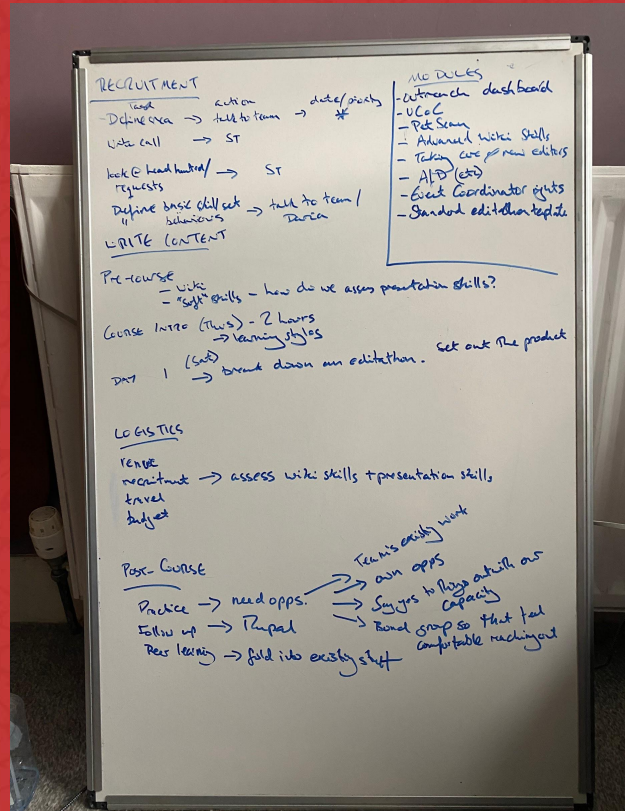 RECRUITMENT
Task action date/priority
- Define area → talk to team → *
Write call → ST
look @ head hunted/ → ST
requests
Define basic skill set → talk to team/
" behaviours Daria
WRITE CONTENT
MODULES
- Outreach dashboard
- UCoC
- PetScan
- Advanced Wiki Skills
- Taking care of new editors
- AfD (etc)
- Event Coordinator rights
- Standard editathon template
Pre-course
- wiki
- "soft" skills - how do we assess presentation skills?
COURSE INTRO (Thurs) - 2 hours
→ learning styles
DAY 1 (Sat) → break down an editathon. Set out the product
LOGISTICS
venue
recruitment → assess wiki skills + presentation skills
travel
budget
POST-COURSE
Practice → need opps. → Team's existing work
→ own opps
→ Say yes to things outwith our
capacity
→ Bond group so that feel
comfortable reaching out
Follow up →
Peer learning → fold into existing stuff